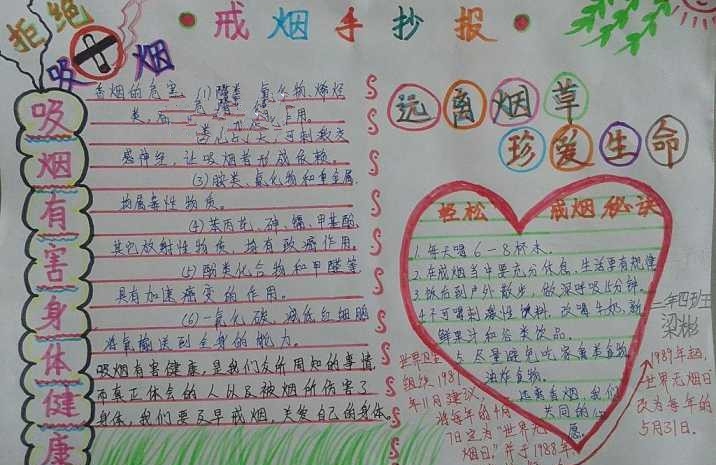 拒绝
吸烟
戒烟手抄报
吸烟有害身体健康
香烟的危害 (1) 醛类、氮化物、烯烃
类,
作用。
可刺激交
感神经,让吸烟者形成依赖。
(3) 胺类、氰化物和重金属,
均属毒性物质。
(4) 苯丙芘、砷、镉、甲基肼
其它放射性物质 均有致癌作用。
(5) 酚类化合物和甲醛等
具有加速癌变的作用。
(6) 一氧化碳 减低红细胞
将氧输送到全身的能力。
吸烟有害健康,是我们众所周知的事情,
而真正体会的人以及被烟所伤害了
身体,我们要及早戒烟,关爱自己的身体。
远离烟草
珍爱生命
轻松 戒烟秘诀
1. 每天喝6—8杯水。
2. 在戒烟当中要充分休息,生活要有规律
3. 饭后到户外散步,做深呼吸15分钟。
4. 不可喝刺激性饮料,改喝牛奶,新
鲜果汁和谷类饮品。
5. 尽量避免吃家禽类食物
油炸食物。
远离香烟 我们
共同的心
愿。
三年四班
梁彬
世界卫生
组织1987
年11月建议,
将每年的4月
7日定为“世界无
烟日”,并于1988年
1989年起,
世界无烟日
改为每年的
5月31日.